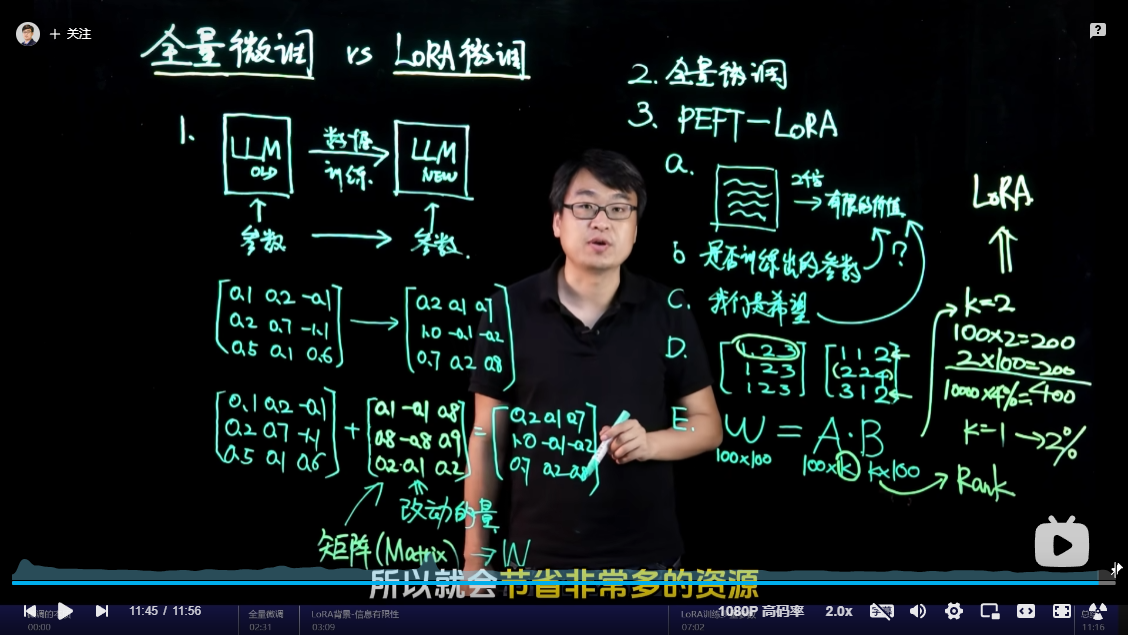 + 关注
全量微调 vs LoRA微调
1.
LLM
OLD
数据
训练.
LLM
NEW
参数
参数.
0.1 0.2 -0.1
0.2 0.7 -1.1
0.5 0.1 0.6
0.2 0.1 0.7
1.0 -0.1 -0.2
0.7 0.2 0.8
0.1 0.2 -0.1
0.2 0.7 -1.1
0.5 0.1 0.6
+
0.1 -0.1 0.8
0.8 -0.8 0.9
0.2 0.1 0.2
=
0.2 0.1 0.7
1.0 -0.1 -0.2
0.7 0.2 0.8
改动的量
矩阵(Matrix) → W
2. 全量微调
3. PEFT-LoRA
a.
2倍
有限的价值
b 是否训练出的参数
?
C. 我们是希望
D.
1 2 3
1 2 3
1 2 3
1 1 2
2 2 4
3 1 2
E. W = A·B
100x100 100xk kx100
Rank
LoRA
k=2
100x2=200
2x100=200
10000x4%=400
k=1 → 2%
所以就会节省非常多的资源
11:45 / 11:56
1080P 高码率
2.0x
00:00
全量微调
02:31
LoRA背景-信息有限性
03:09
07:02
11:16